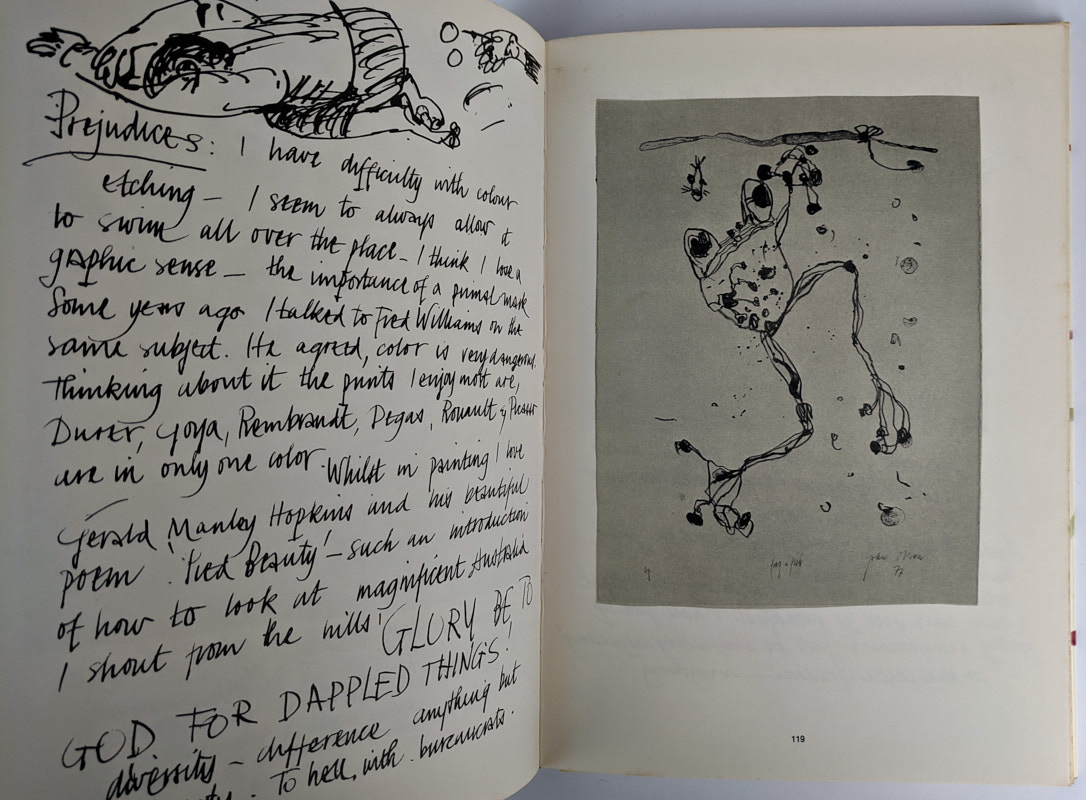 Prejudices: I have difficulty with colour
etching – I seem to always allow it
to swim all over the place – I think I love a
graphic sense – the importance of a primal mark
Some years ago I talked to Fred Williams on the
same subject. He agreed, color is very dangerous.
Thinking about it the prints I enjoy most are,
Durer, Goya, Rembrandt, Degas, Rouault & Picasso
are in only one color. Whilst in painting I love
Gerald Manley Hopkins and his beautiful
poem 'Pied Beauty' – such an introduction
of how to look at magnificent Australia
I shout from the hills! GLORY BE TO
GOD FOR DAPPLED THINGS!
diversity – difference anything but
To hell, with bureaucrats.
John Olsen
77
119